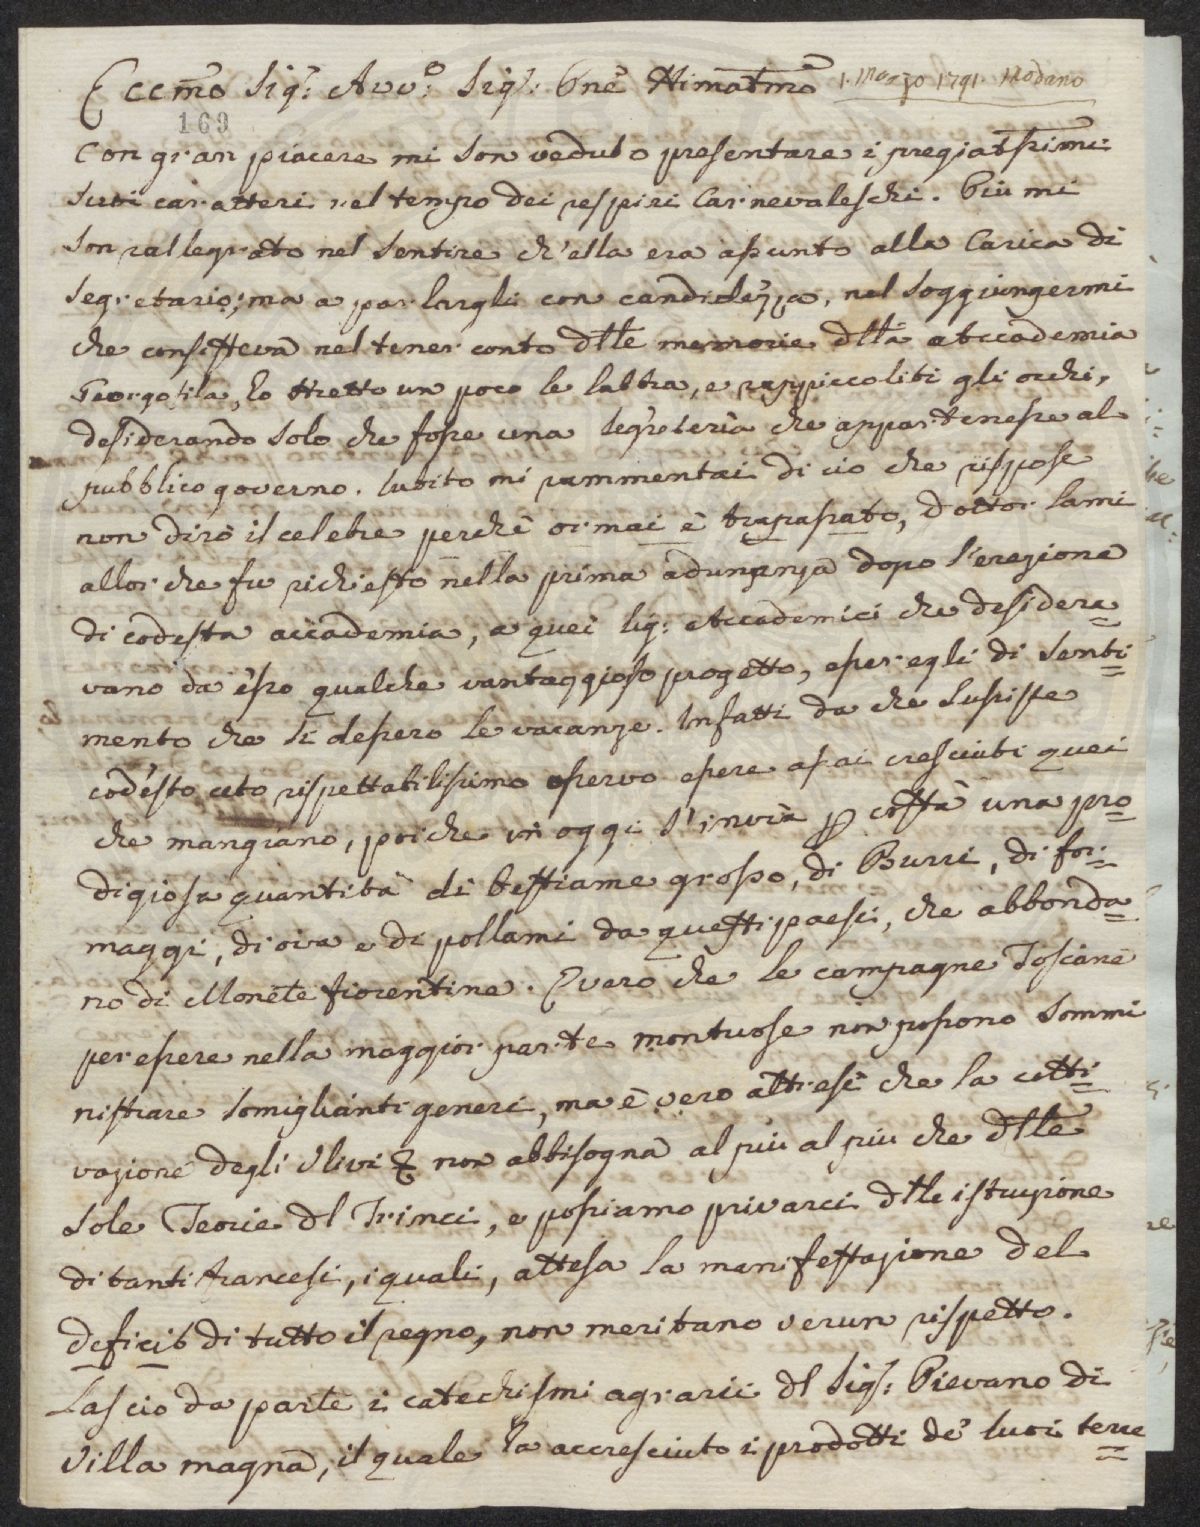 Eccmo Sig: Avvo: Sigr: Pne Stimatmo 1. Marzo 1791. Modano
169
Con gran piacere mi son veduto presentare i pregiatissimi
suoi caratteri nel tempo dei respiri Carnevaleschi. Più mi
son rallegrato nel sentire ch'ella era assunto alla Carica di
Segretario; ma a parlargli con candidezza, nel soggiungermi
che consisteva nel tener conto dlle memorie dlla Accademia
Georgofila, ho stretto un poco le labbra, e rappiccoliti gli occhi,
desiderando solo che fosse una Segreteria che appartenesse al
pubblico governo. Subito mi rammentai di ciò che rispose
non dirò il celebre perchè ormai è trapassato, Dottor Lami
allor che fu richiesto nella prima adunanza dopo l'erezione
di codesta accademia, a quei Sig: Accademici che desidera=
vano da esso qualche vantaggioso progetto, esser egli di senti=
mento che si dessero le vacanze. Infatti da che sussiste
codesto ceto rispettabilissimo osservo essere assai cresciuti quei
che mangiano, poichè in oggi s'invia p costà una pro=
digiosa quantità di bestiame grosso, di Burri, di for=
maggi, di ova e di pollami da questi paesi, che abbonda=
no di Monete fiorentine. È vero che le campagne Toscane
per essere nella maggior parte montuose non possono sommi
nistrare somiglianti generi, ma è vero altresì che la colti=
vazione degli Ulivi & non abbisogna al più al più che dlle
sole Teorie dl Trinci, e possiamo privarci dlle istruzione
di tanti francesi, i quali, attesa la manifestazione del
deficit di tutto il regno, non meritano verun rispetto.
Lascio da parte i catechismi agrarii dl Sigr: Pievano di
Villa magna, il quale ha accresciuto i prodotti de' suoi terre=